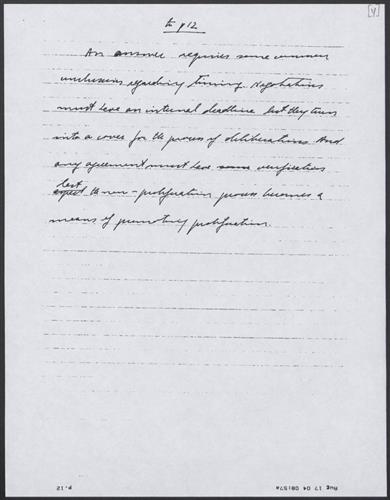 4
to p12
An answer requires some common
conclusions regarding timing. Negotiations
must have an internal deadline lest they turn
into a cover for the process of deliberations. And
any agreement must have some verification
lest expect the non-proliferation process becomes a
means of promoting proliferation.
P.12
Aug 17 04 08:57a